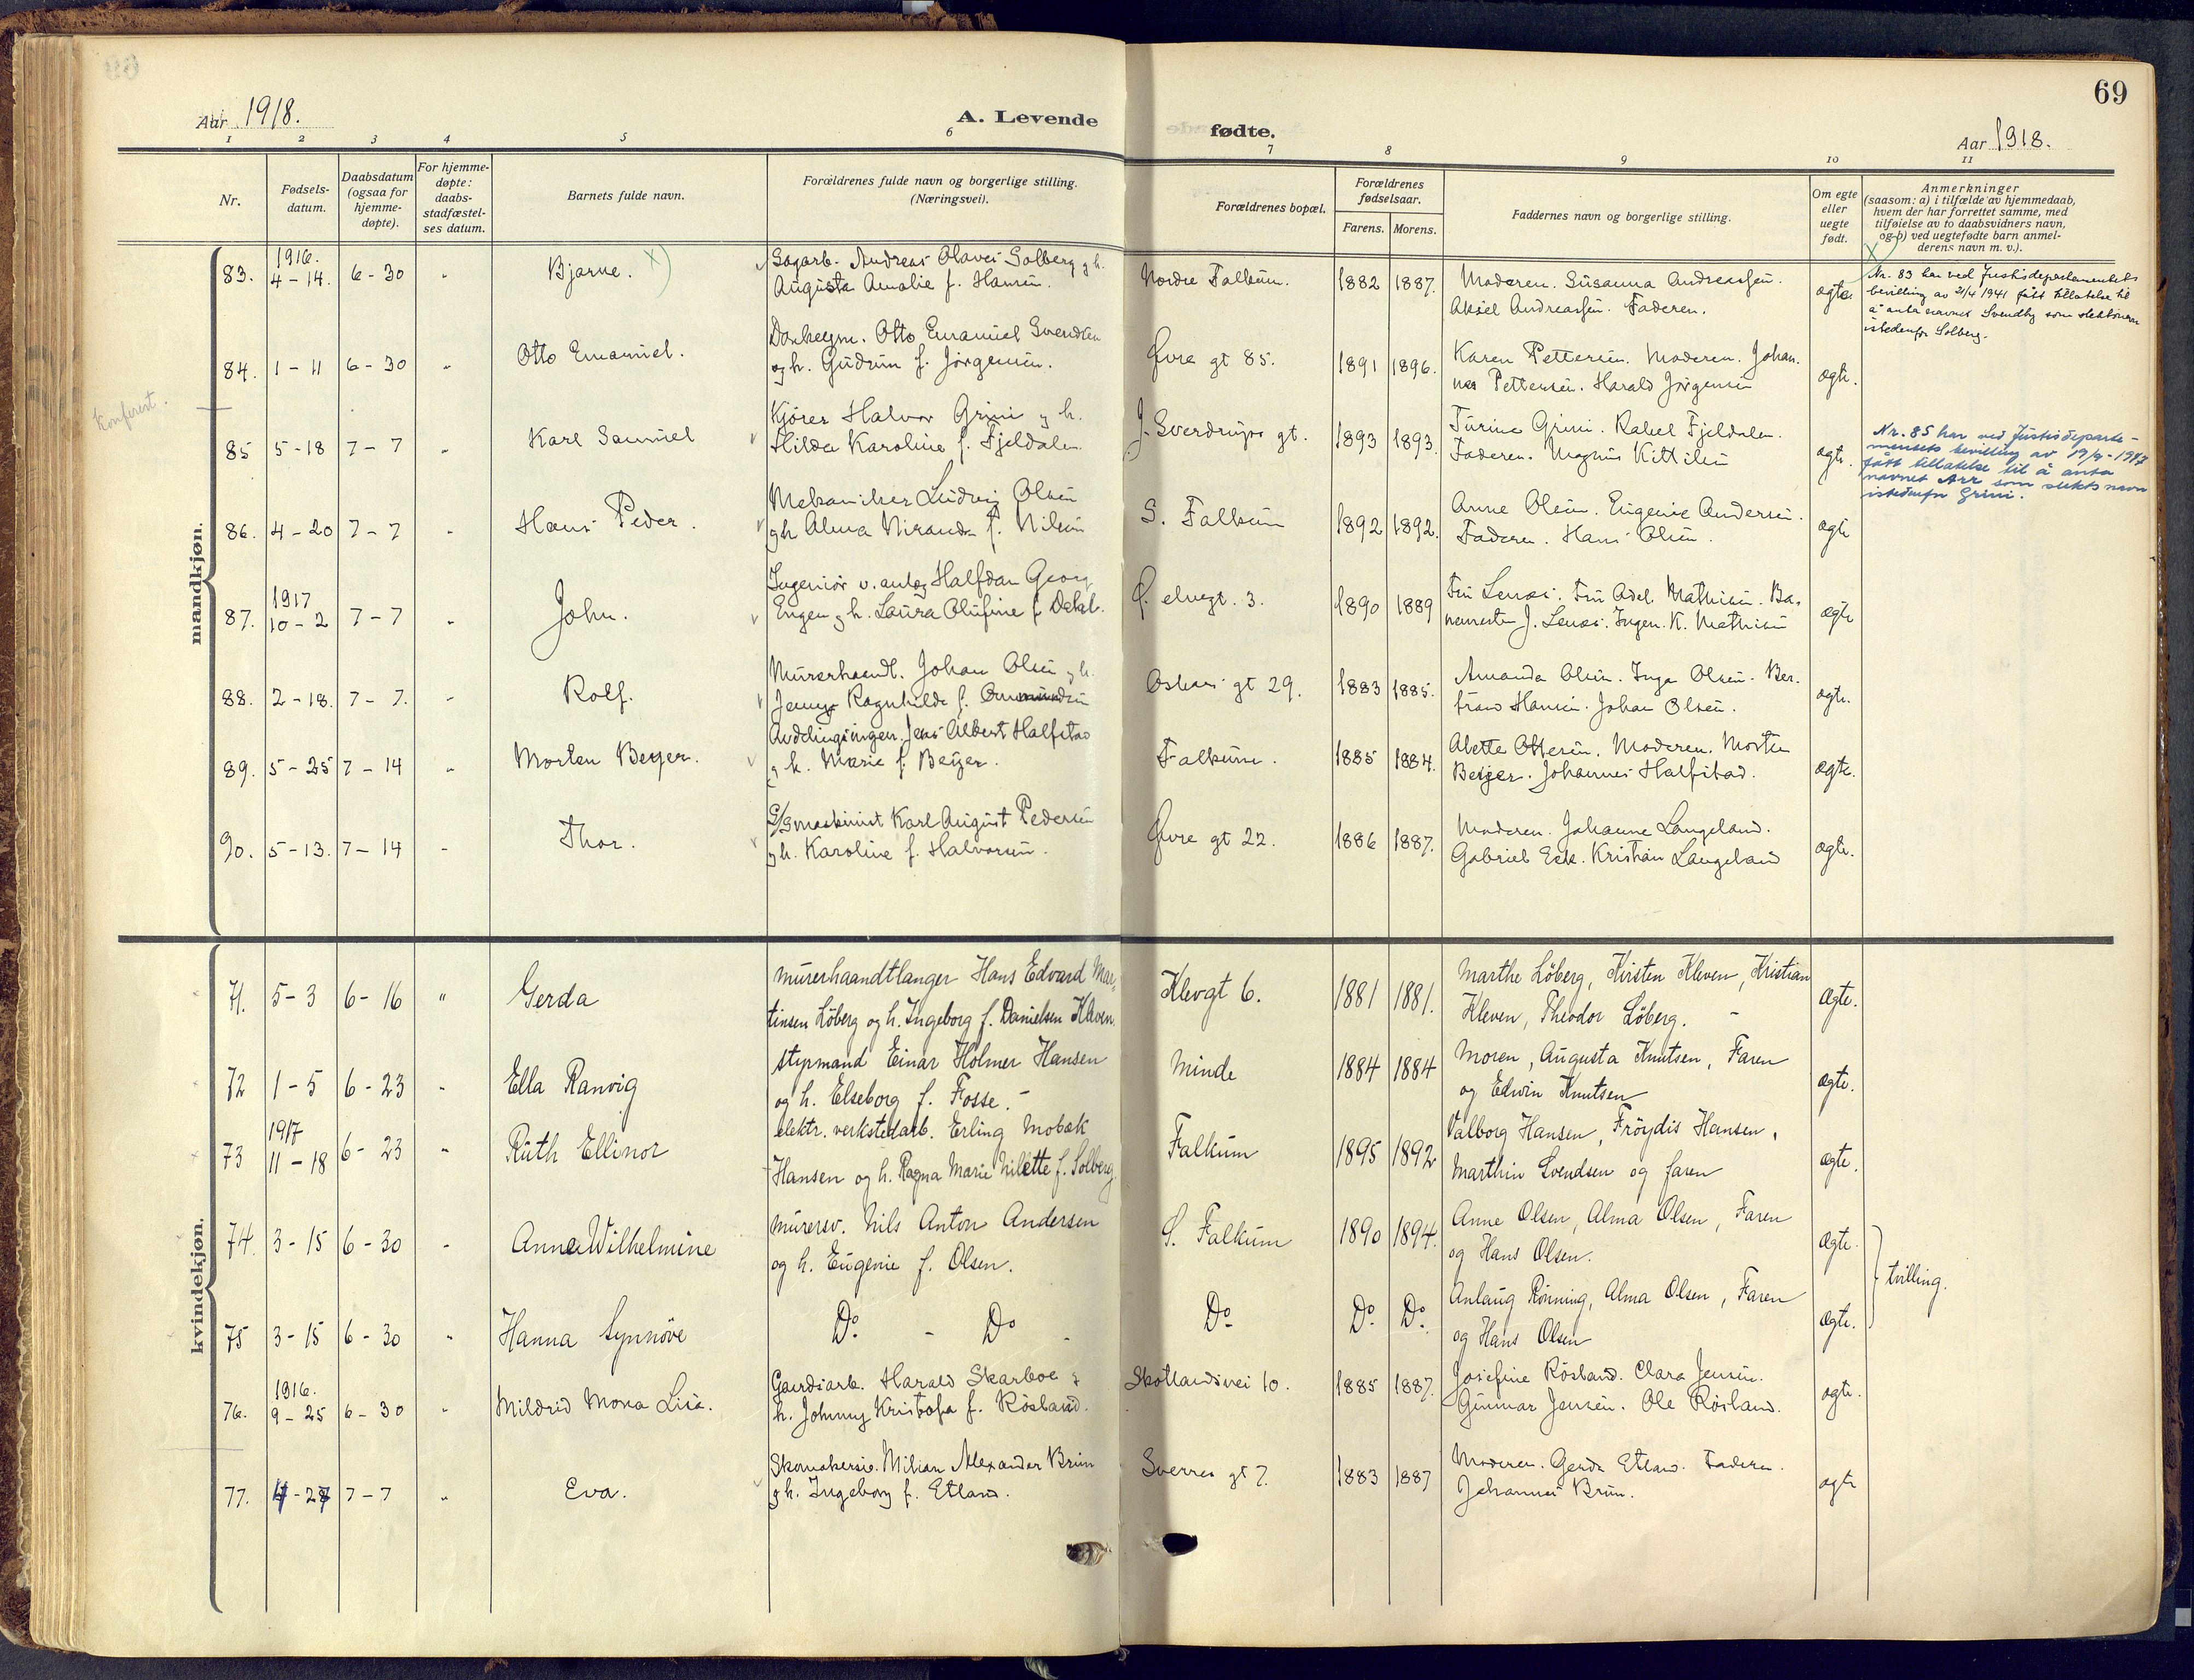 69
Aar 1918.
A. Levende
fødte.
Aar 1918.
1 2 3 4 5 6 7 8 9 10 11
Nr.
Fødsels-
datum.
Daabsdatum
(ogsaa for
hjemme-
døpte).
For hjemme-
døpte:
daabs-
stadfæstel-
ses datum.
Barnets fulde navn.
Forældrenes fulde navn og borgerlige stilling.
(Næringsvei).
Forældrenes bopæl.
Forældrenes
fødselsaar.
Farens. Morens.
Faddernes navn og borgerlige stilling.
Om egte
eller
uegte
født.
Anmerkninger
(saasom: a) i tilfælde av hjemmedaab,
hvem der har forrettet samme, med
tilføielse av to daabsvidners navn,
og b) ved uegtefødte barn anmel-
derens navn m. v.).
mandkjøn.
83. 1916. 4-14. 6-30 " Bjarne. x)
Sagarb. Andreas Olaves Solberg og h.
Augusta Amalie f. Hansen.
Nordre Falkum. 1882 1887.
Moderen. Susanna Andreassen.
Aksel Andreassen. Faderen.
ægte
x Nr. 83 har ved Justisdepartementets
bevilling av 21/4 1941 fått tillatelse til
å anta navnet Svendby som slektsnavn
istedenfor Solberg.
84. 1-11 6-30 " Otto Emanuel.
Otto Emanuel Svendsen
og h. Gudrun f. Jørgensen.
Øvre gt 85. 1891 1896.
Karen Pettersen. Moderen. Johan-
nes Pettersen. Harald Jørgensen
ægte.
Konferert.
85 5-18 7-7 " Karl Samuel
Kjører Halvor Grini og h.
Hilda Karoline f. Fjeldalen
J. Sverdrups gt. 1893 1893.
Turine Grini. Rakel Fjeldalen.
Faderen. Magnus Kittilsen
ægte.
Nr. 85 har ved Justisdeparte-
mentets bevilling av 19/9-1947
fått tillatelse til å anta
navnet Arr som slektsnavn
istedenfor Grini.
86. 4-20 7-7 " Hans Peder.
Mekaniker Ludvig Olsen
og h Alma f. Nilsen
S. Falkum 1892 1892.
Anne Olsen. Eugenie Andersen.
Faderen. Hans Olsen.
ægte
87. 1917 10-2 7-7 " John.
Ingeniør v. anlæg Halfdan Georg
Engen og h. Laura Olufine f. Dahl.
elvegt. 3. 1890 1889
Fru Lenæs. Fru Adel Mathisen. Ba-
nemester J. Lenæs. Ingen. K. Mathisen
ægte
88. 2-18. 7-7. " Rolf.
Murerhaandl. Johan Olsen og h.
Jenny Ragnhilde f.
Oskars gt 29. 1883 1885.
Amanda Olsen. Inga Olsen. Ber-
Hansen. Johan Olsen.
ægte.
89. 5-25 7-14 " Morten Beyer.
Avdelingsingen. Jens Albert Halfstad
og h. Marie f. Beyer.
Falkum. 1885 1884.
Abette Ottesen. Moderen. Morten
Beyer. Johannes Halfstad.
ægte.
90. 5-13. 7-14 " Thor.
D/Smaskinist Karl August Pedersen
og h. Karoline f. Halvorsen.
Øvre gt 22. 1886 1887.
Moderen. Johanne Langeland.
Gabriel Eek. Kristian Langeland
ægte.
kvindekjøn.
71. 5-3 6-16 " Gerda
murerhaandtlanger Hans Edvard Mar-
tinsen Löberg og h. Ingeborg f. Danielsen Kleven.
Klevgt 6. 1881 1881.
Marthe Löberg, Kirsten Kleven, Kristian
Kleven, Theodor Löberg. -
ægte.
72 1-5 6-23 " Ella Ranvig
styrmand Einar Holmer Hansen
og h. Elseborg f. Fosse. -
Minde 1884 1884
Moren, Augusta Knutsen, Faren
og Edwin Knutsen
ægte.
73 1917 11-18 6-23 " Ruth Ellinor
elektr. verkstedarb. Erling Mobæk
Hansen og h. Ragna Marie Nilette f. Solberg.
Falkum 1895 1892
Valborg Hansen, Fröydis Hansen,
Marthin Svendsen og faren
ægte.
74. 3-15 6-30 " Anna Wilhelmine
murersv. Nils Anton Andersen
og h. Eugenie f. Olsen.
S. Falkum 1890 1894.
Anne Olsen, Alma Olsen, Faren
og Hans Olsen.
ægte.
tvilling.
75 3-15 6-30 " Hanna Synnöve
Do - Do -
Do Do Do
Anlaug Rönning, Alma Olsen, Faren
og Hans Olsen
ægte.
76. 1916. 9-25 6-30 " Mildrid Mona Lisa.
Gaardsarb. Harald Skarboe og
h. Johnny Kristofa f. Røsland.
Skotlandsvei 10. 1885 1887.
Josefine Røsland. Clara Jensen.
Gunnar Jensen. Ole Røsland.
ægte.
77. 4-27 7-7 " Eva.
Skomakersv. Milian Alexander Brun
og h. Ingeborg f. Etland.
Sverres gt 7. 1883 1887
Moderen. Gerda Etland. Faderen.
Johannes Brun.
ægte